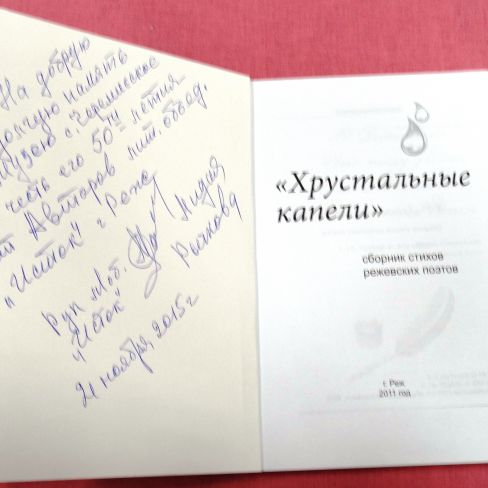 На добрую
долгую память
музею с. Черемисское
в честь его 50 ти летия
от Авторов лит. объед.
"Исток" г. Реж
Рук лиоб.
"Исток"
Лидия
Рычкова
21 ноября, 2015 г
«Хрустальные
капели»
сборник стихов
режевских поэтов
г. Реж
2011 год